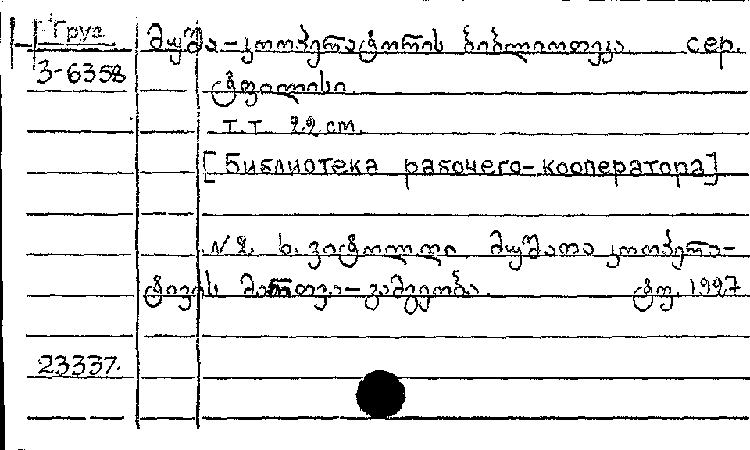 Груз. მუშა-კოოპერატორის ბიბლიოთეკა сер.
3-6358 ტფილისი.
т.т. 22 cm.
[Библиотека рабочего-кооператора]
№ 2. ს. ვიტოლდი მუშათა კოოპერა-
ტივის მართვა-გამგეობა. ტფ. 1927
23337.